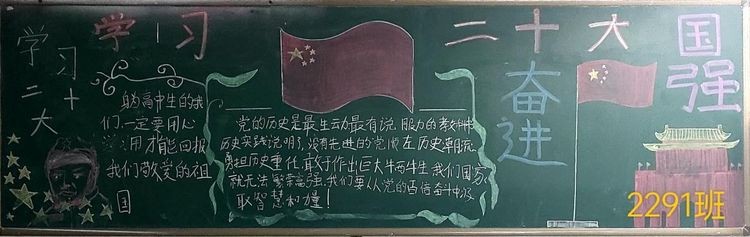 学习二十大
学习
二十大
奋进
国强
身为高中生的我
们,一定要用心
用才能回报
我们敬爱的祖
国
党的历史是最生动最有说服力的教科书
历史实践说明了,没有先进的党顺应历史潮流
勇担历史重任敢于作出巨大牺牲,我们国家
就无法繁荣富强。我们要从党的百倍奋斗中汲
取智慧和力量!
2291班